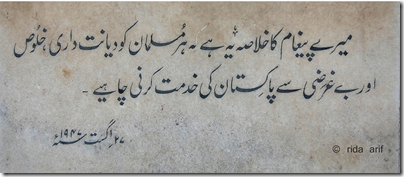 میرے پیغام کا خلاصہ یہ ہے کہ ہر مسلمان کو دیانت داری، خلوص
اور بے غرضی سے پاکستان کی خدمت کرنی چاہیے ۔
۲۷ اگست ۱۹۴۷ء
© rida arif